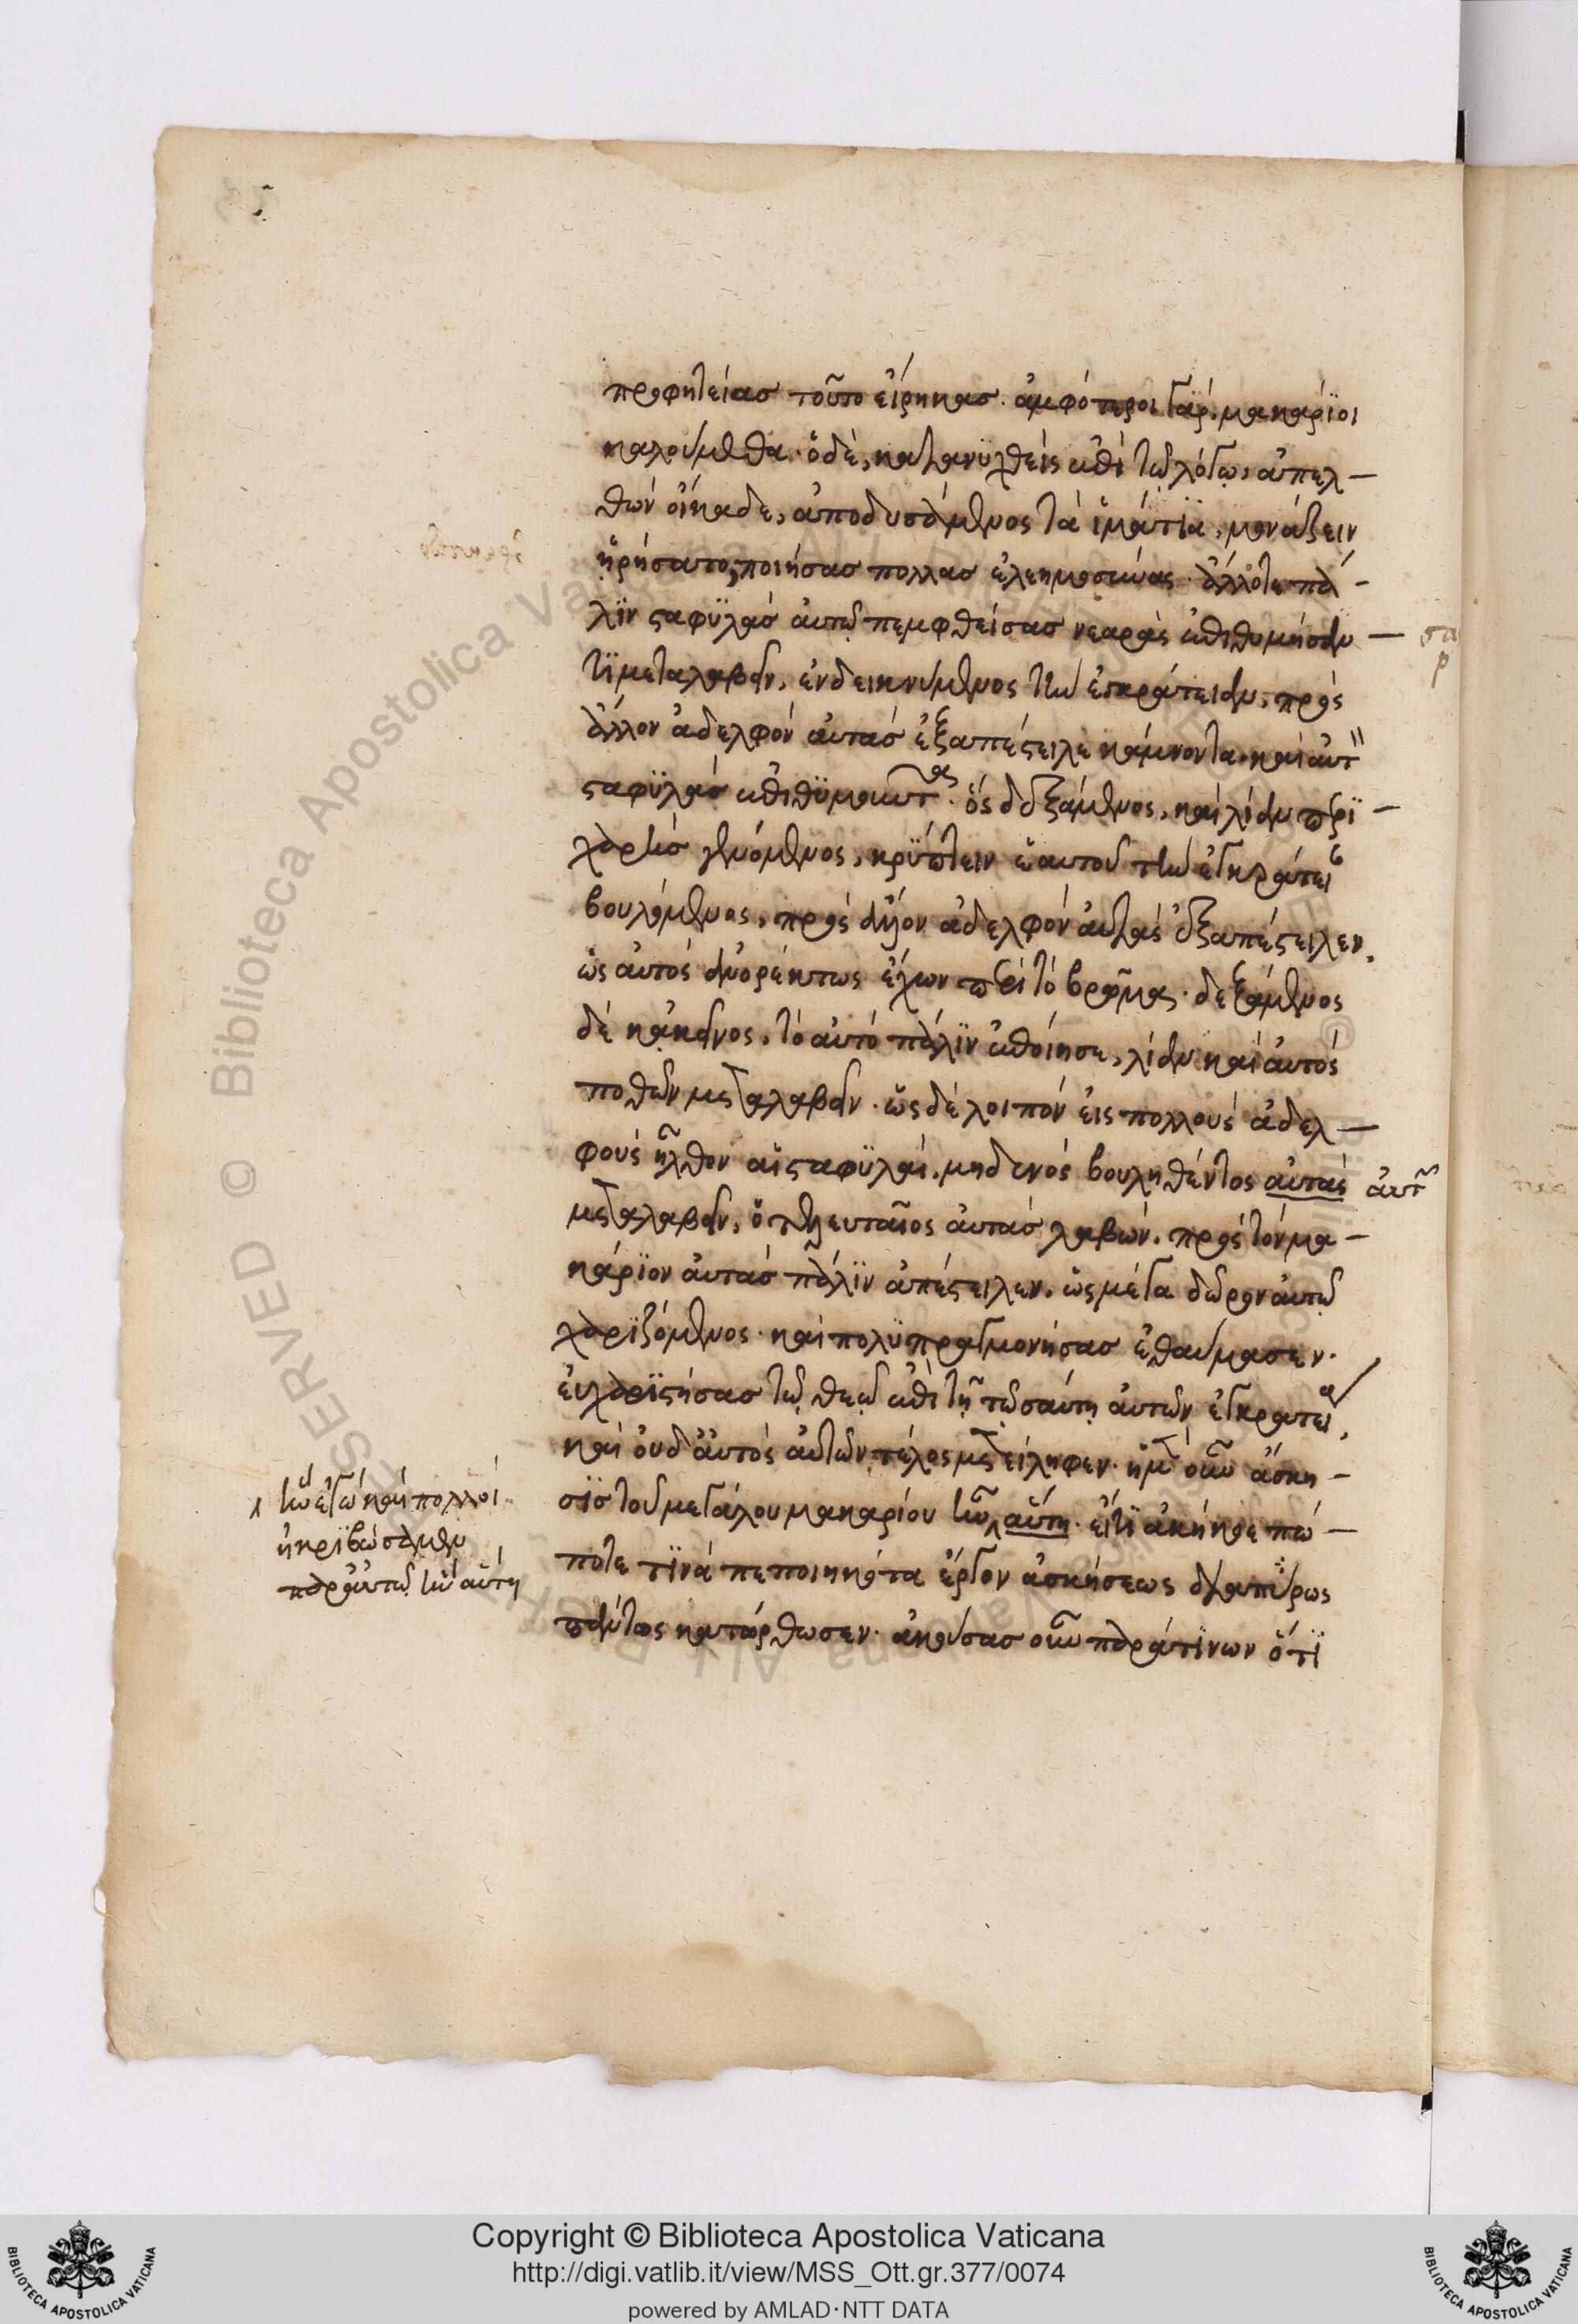 προφητείας τοῦτο εἴρηκας. ἀμφότεροι γὰρ, μακάριοι
καλούμεθα. ὁ δὲ, κατανυχθεὶς ἐπὶ τῶ λόγω, ἀπελ-
θὼν οἴκαδε, ἀποδυσάμενος τὰ ἱμάτια, μονάζειν
ἡρήσατο, ποιήσας πολλὰς ἐλεημοσύνας. ἄλλοτε πά-
λιν σταφυλὰς αὐτῶ πεμφθείσας νεαρὰς ἐπιθυμήσαν-
τι μεταλαβεῖν, ἐνδεικνύμενος τὴν ἐγκράτειαν, πρὸς
ἄλλον ἀδελφὸν αὐτὰς ἐξαπέστειλε κάμνοντα, καὶ αὐτ
σταφυλὰς ἐπιθυμοῦντας. ὃς δεξάμενος, καὶ λίαν περι-
χαρὴς γενόμενος, κρύπτειν ἑαυτοῦ τὴν ἐγκράτει
βουλόμενος, πρὸς ἄλλον ἀδελφὸν αὐτὰς ἐξαπέστειλεν,
ὡς αὐτὸς ἀνορέκτως ἔχων περὶ τὸ βρῶμα. δεξάμενος
δὲ κἀκεῖνος, τὸ αὐτὸ πάλιν ἐποίησε, λίαν καὶ αὐτὸς
ποθῶν μεταλαβεῖν. ὡς δὲ λοιπὸν εἰς πολλοὺς ἀδελ-
φοὺς ἦλθον αἱ σταφυλαὶ, μηδενὸς βουληθέντος αὐτὰς αὐτ
μεταλαβεῖν, ὁ τελευταῖος αὐτὰς λαβὼν, πρὸς τὸν μα-
κάριον αὐτὰς πάλιν ἀπέστειλεν, ὡς μέγα δῶρον αὐτῶ
χαριζόμενος. καὶ πολυπραγμονήσας ἐθαύμασεν.
εὐχαριστήσας τῶ θεῶ ἐπὶ τῆ τοσαύτη αὐτῶν ἐγκρατεία,
καὶ οὐδ' αὐτὸς αὐτῶν τέλος μετείληφεν. ἡ μὲν οὖν ἄσκη-
σις τοῦ μεγάλου μακαρίου ἦν αὕτη. εἴ τι ἀκήκοε πώ-
ποτε τινὰ πεποιηκότα ἔργον ἀσκήσεως διαπύρως
πάντως κατώρθωσεν. ἀκούσας οὖν παρά τινων ὅτι
ἣν ἐγὼ καὶ πολλοὶ
ἠκριβωσάμεθα
παρ' αὐτῶ ἦν αὕτη
Copyright © Biblioteca Apostolica Vaticana
http://digi.vatlib.it/view/MSS_Ott.gr.377/0074
powered by AMLAD·NTT DATA